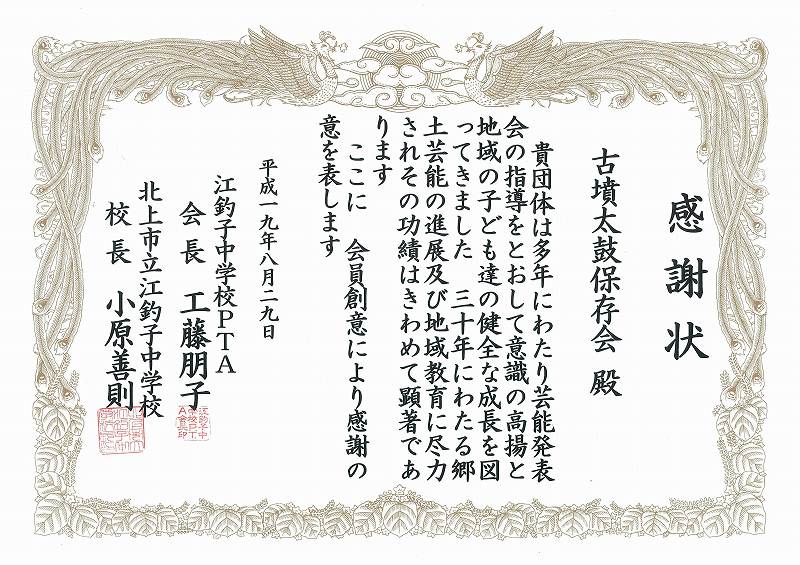 感謝状
古墳太鼓保存会 殿
貴団体は多年にわたり芸能発表
会の指導をとおして意識の高揚と
地域の子ども達の健全な成長を図
ってきました 三十年にわたる郷
土芸能の進展及び地域教育に尽力
されその功績はきわめて顕著であ
ります
ここに 会員創意により感謝の
意を表します
平成一九年八月二九日
江釣子中学校PTA
会長 工藤朋子
北上市立江釣子中学校
校長 小原善則